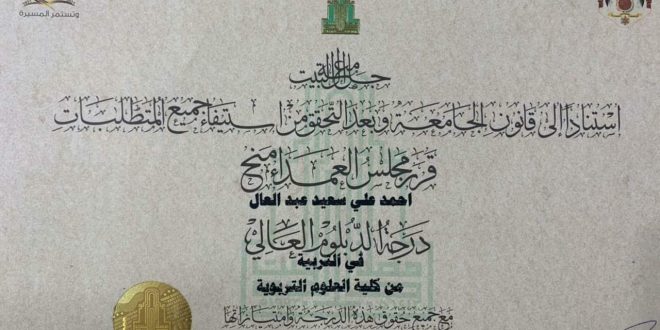 وتستمر المسيرة
جامعة آل البيت
استناداً إلى قانون الجامعة وبعد التحقق من استيفاء جميع المتطلبات
قرر مجلس العمداء منح
احمد علي سعيد عبد العال
درجة الدبلوم العالي
في التربية
من كلية العلوم التربوية
مع جميع حقوق هذه الدرجة وامتيازاتها